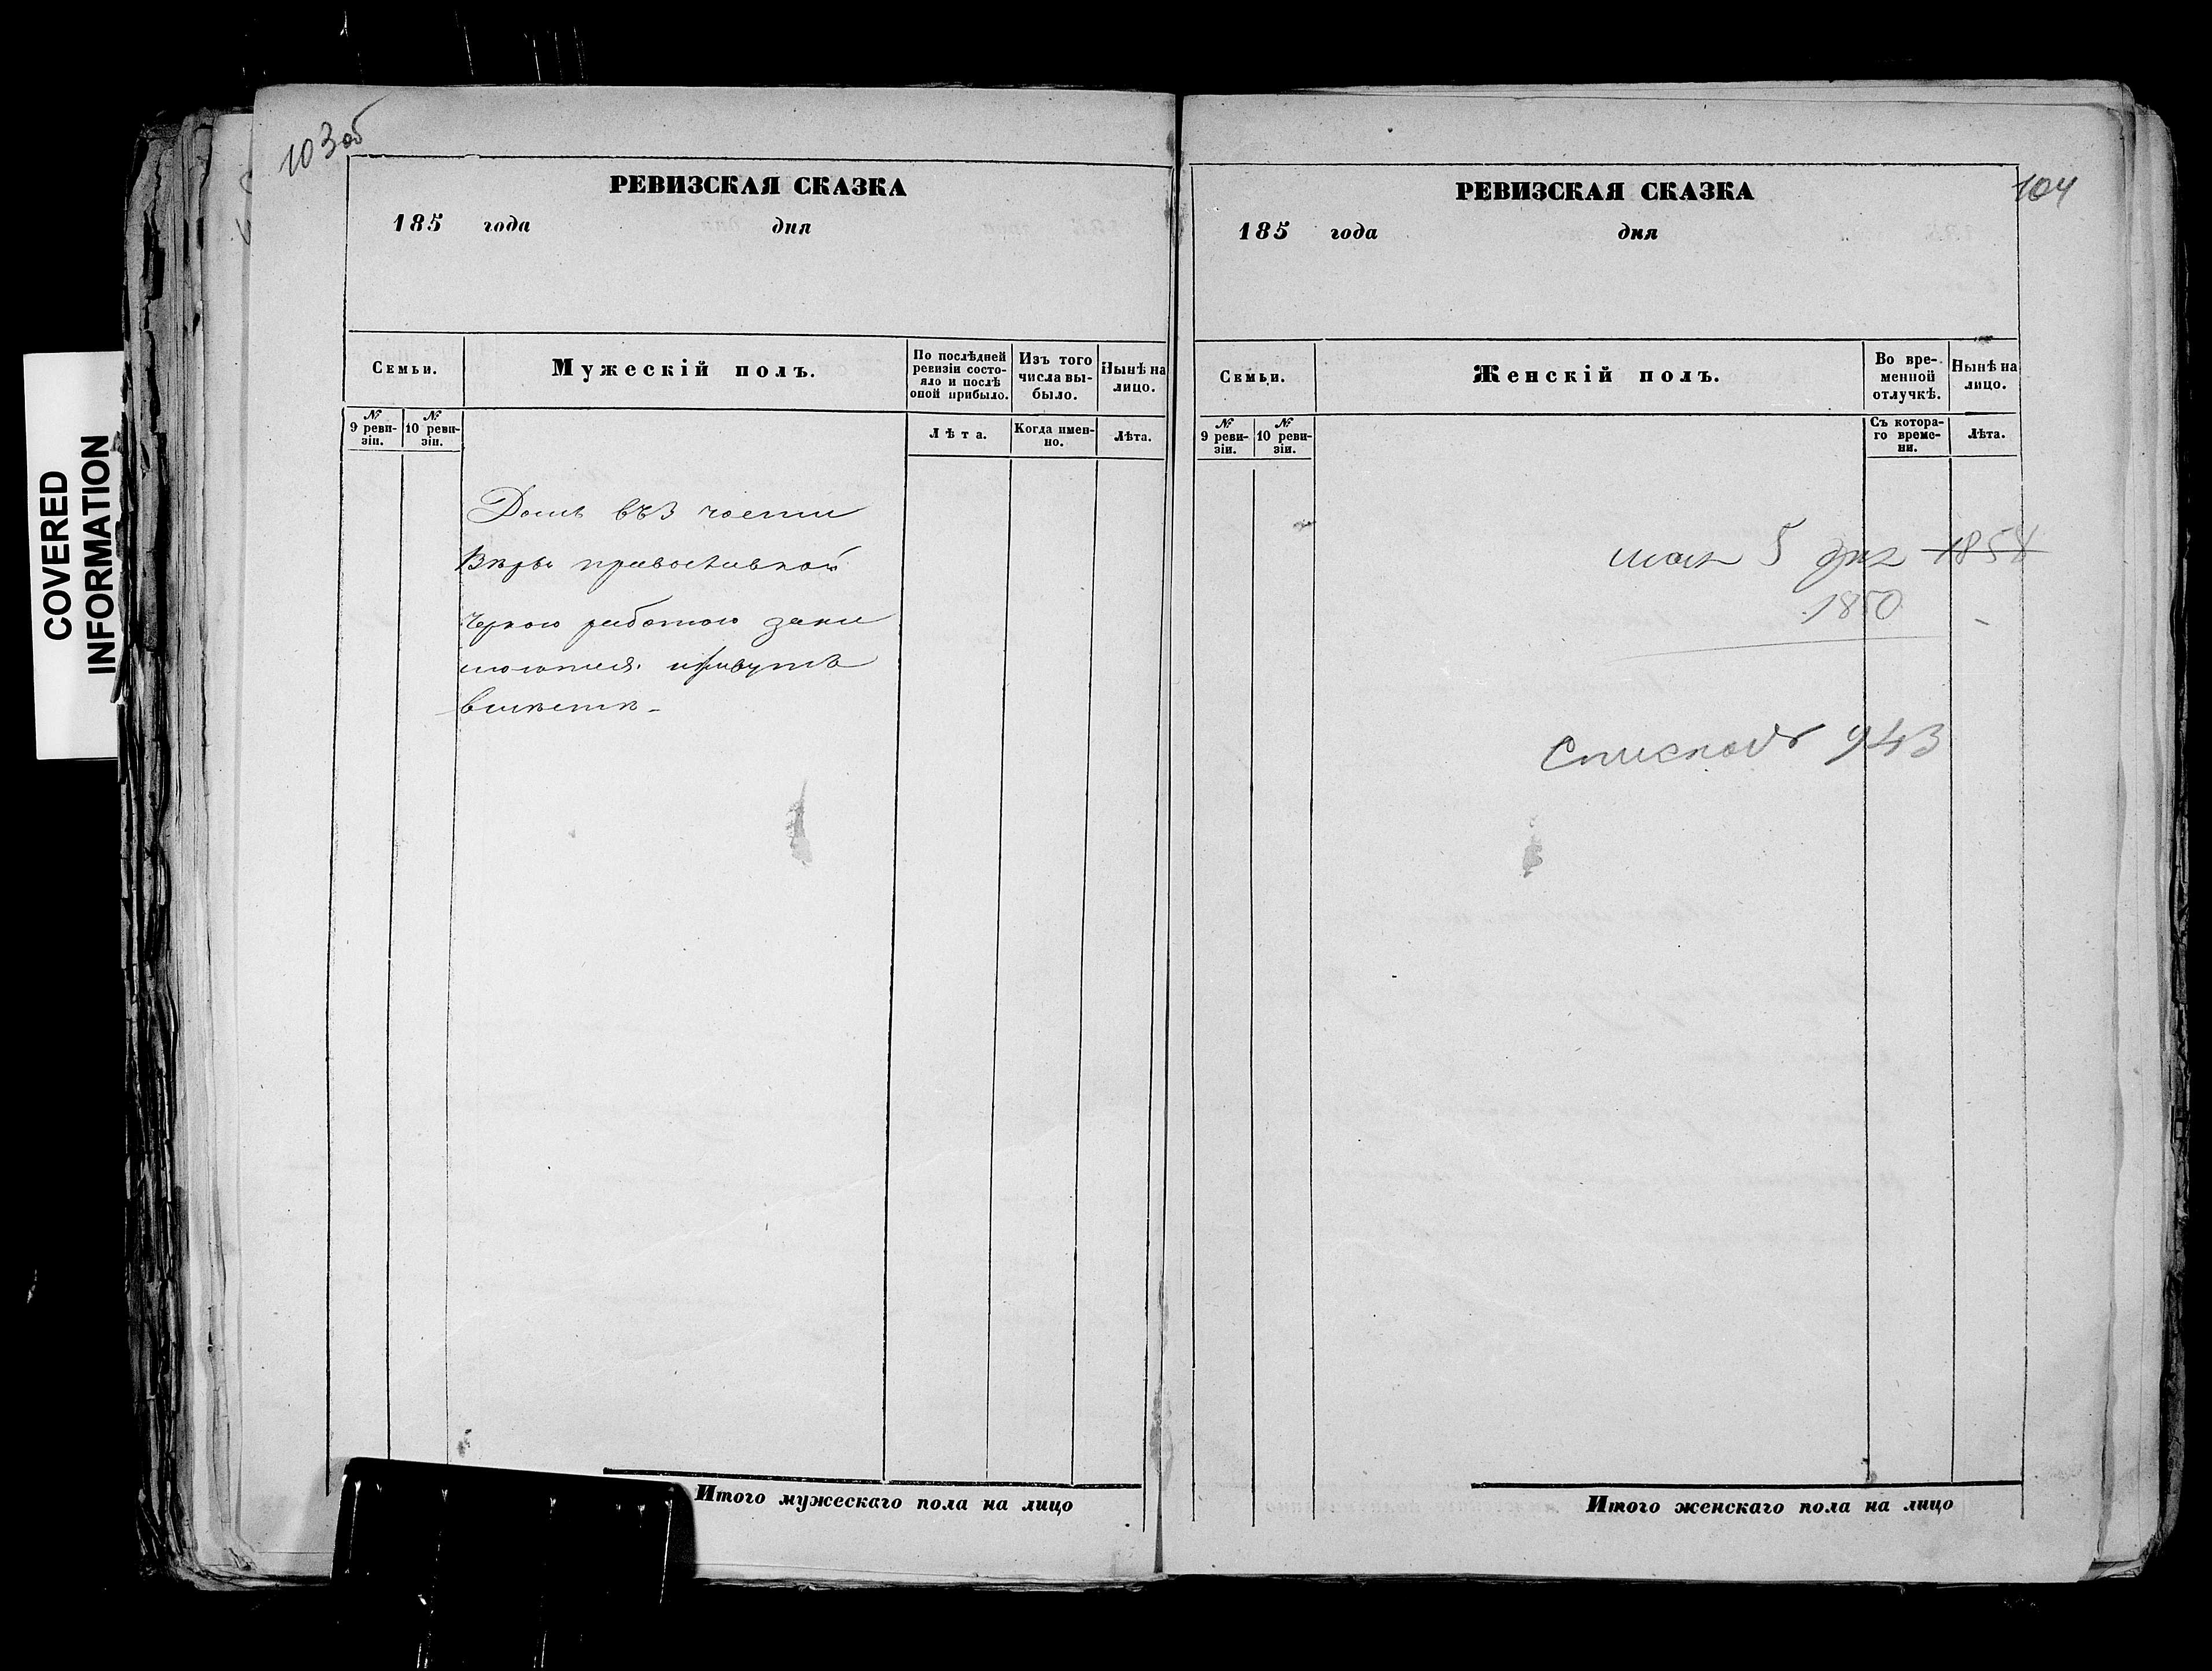 COVERED
INFORMATION
103об
РЕВИЗСКАЯ СКАЗКА
185 года дня
Семьи.
Мужескій полъ.
По послѣдней ревизіи состояло и послѣ оной прибыло.
Изъ того числа выбыло.
Нынѣ на лицо.
№ 9 ревизіи.
№ 10 ревизіи.
Лѣта.
Когда именно.
Лѣта.
Домъ въ 3 части
Вѣры православной
Черною работою зани
маются. живутъ
вмѣстѣ
Итого мужескаго пола на лицо
104
РЕВИЗСКАЯ СКАЗКА
185 года дня
Семьи.
Женскій полъ.
Во временной отлучкѣ.
Нынѣ на лицо.
№ 9 ревизіи.
№ 10 ревизіи.
Съ котораго времени.
Лѣта.
мая 5 дня 1858
1850
943
Итого женскаго пола на лицо